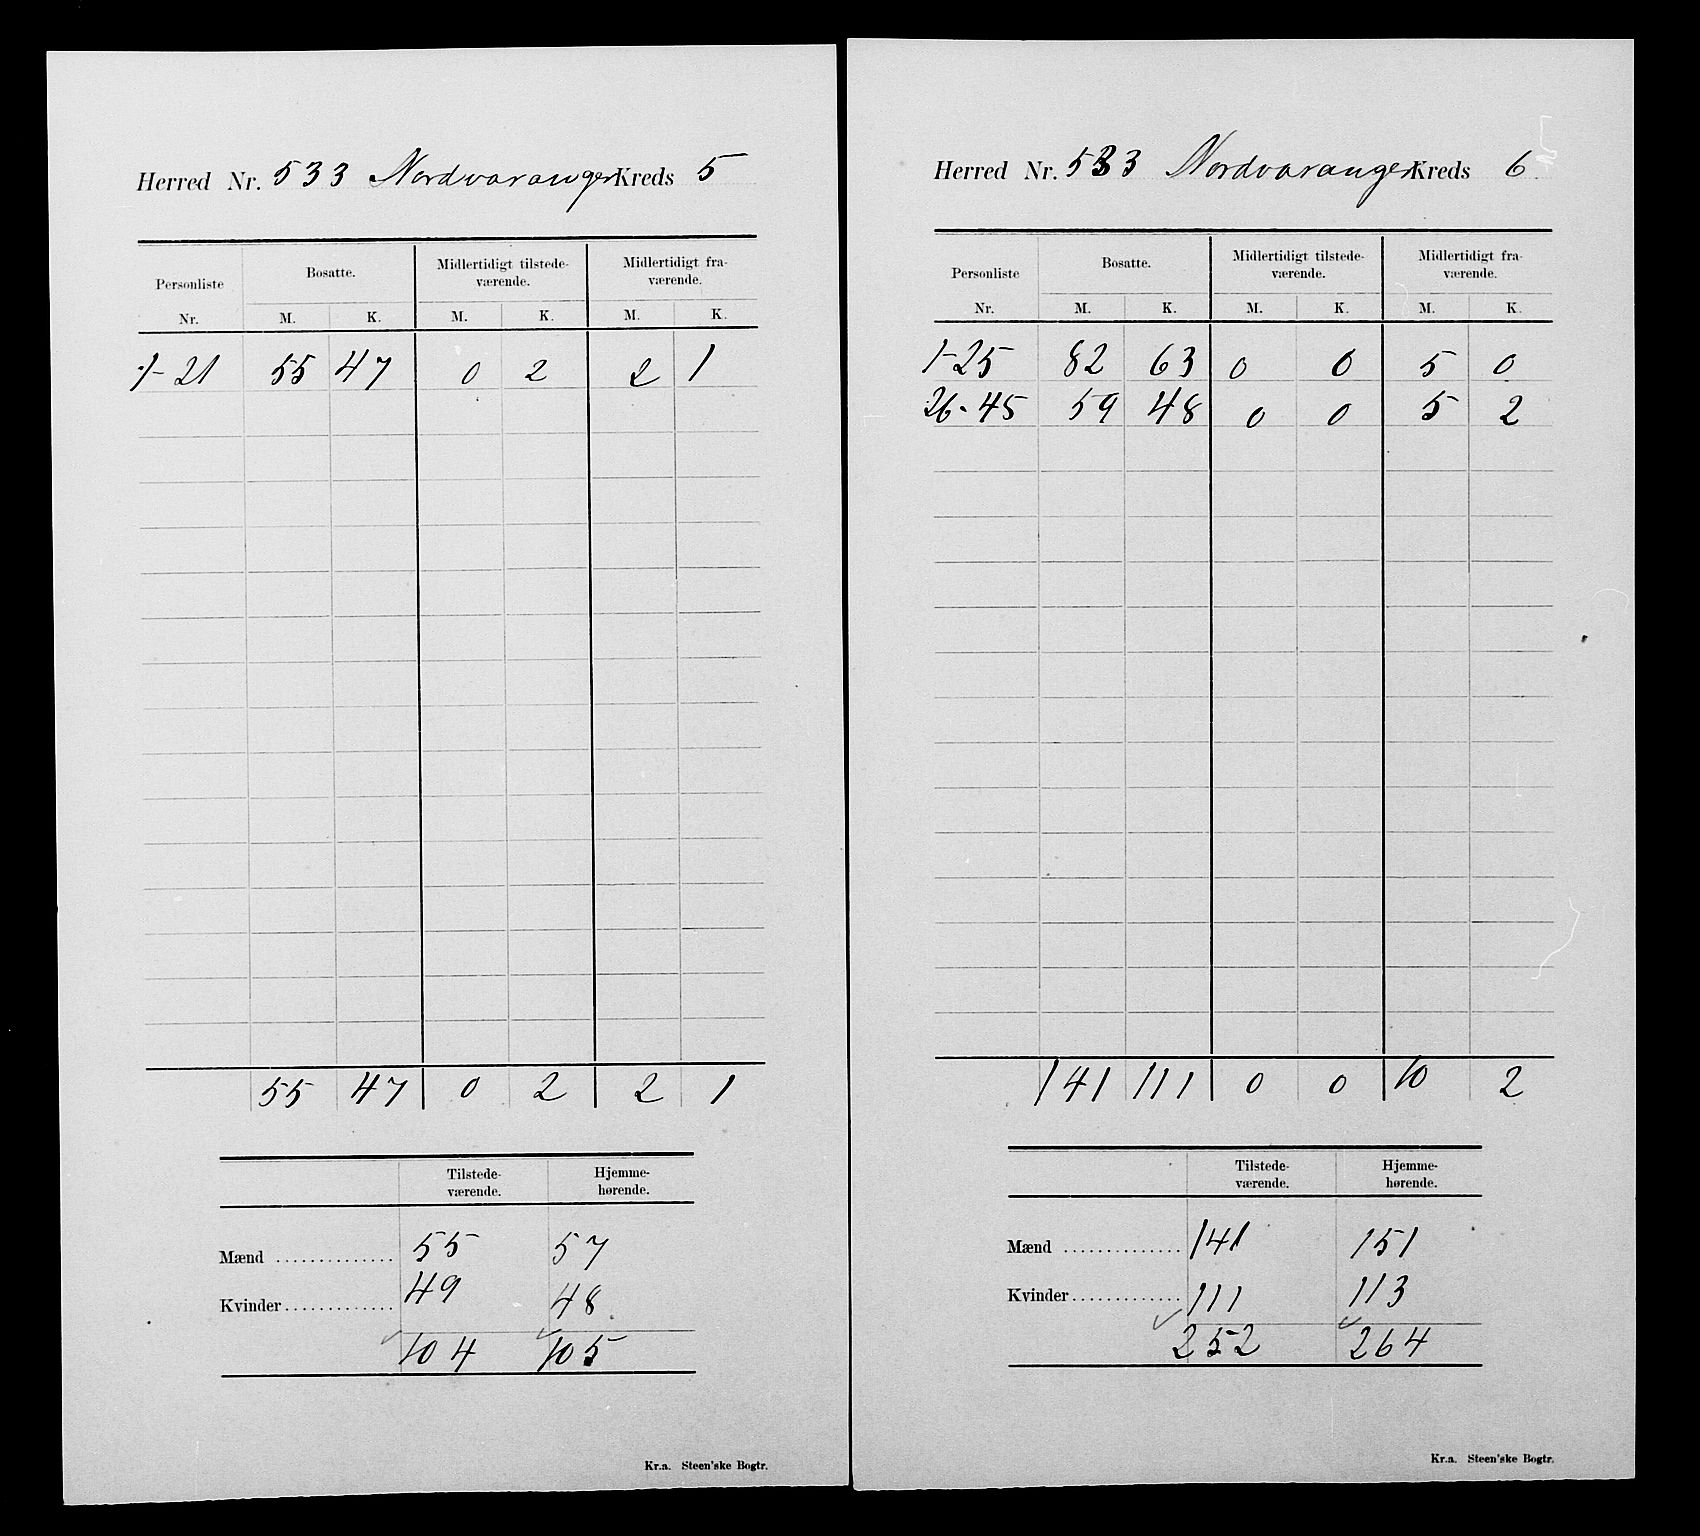 Herred Nr. 533 Nordvaranger Kreds 5
Personliste Bosatte. Midlertidigt tilstede- Midlertidigt fra-
værende. værende.
Nr. M. K. M. K. M. K.
1-21 55 47 0 2 2 1
55 47 0 2 2 1
Tilstede- Hjemme-
værende. hørende.
Mænd 55 57
Kvinder 49 48
104 105
Kr.a. Steen'ske Bogtr.
Herred Nr. 533 Nordvaranger Kreds 6
Personliste Bosatte. Midlertidigt tilstede- Midlertidigt fra-
værende. værende.
Nr. M. K. M. K. M. K.
1-25 82 63 0 0 5 0
26-45 59 48 0 0 5 2
141 111 0 0 10 2
Tilstede- Hjemme-
værende. hørende.
Mænd 141 151
Kvinder 111 113
252 264
Kr.a. Steen'ske Bogtr.